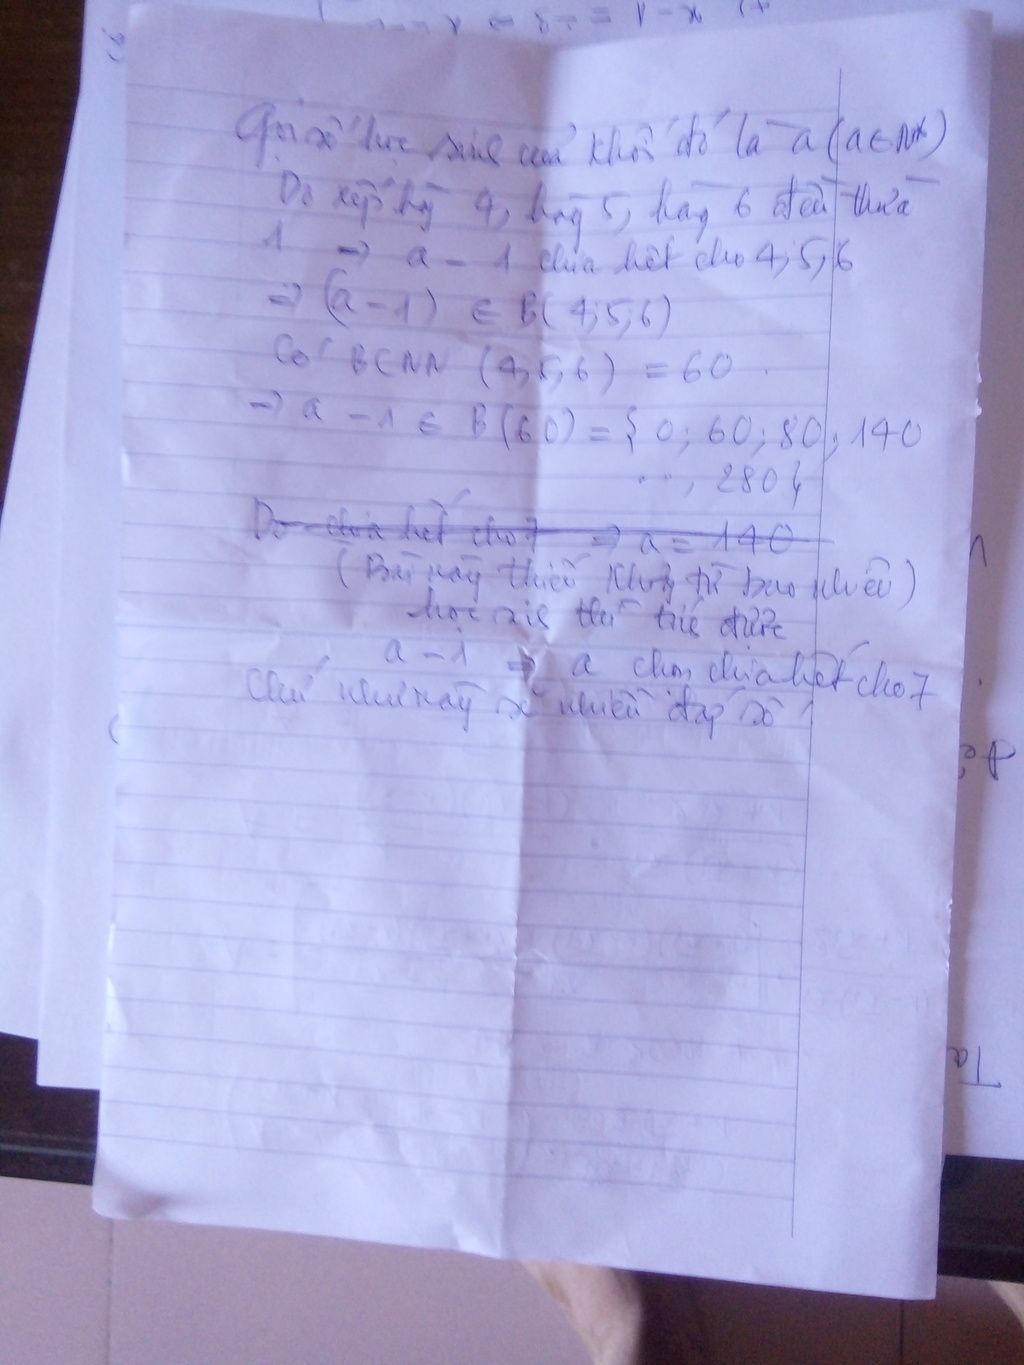 Gọi số học sinh của khối đó là a (a ∈ N*)
Do xếp hàng 4, hàng 5, hàng 6 đều thừa
1 => a - 1 chia hết cho 4; 5; 6
=> (a - 1) ∈ B(4; 5; 6)
Có BCNN (4; 5; 6) = 60
=> a - 1 ∈ B(60) = { 0; 60; 80; 140
..., 280 }
Do chia hết cho 7 => a = 140
(Bài này thiếu khoảng từ bao nhiêu)
học sinh thì tiếp được
a - 1 => a chia hết cho 7
Chứ như này sẽ nhiều đáp số